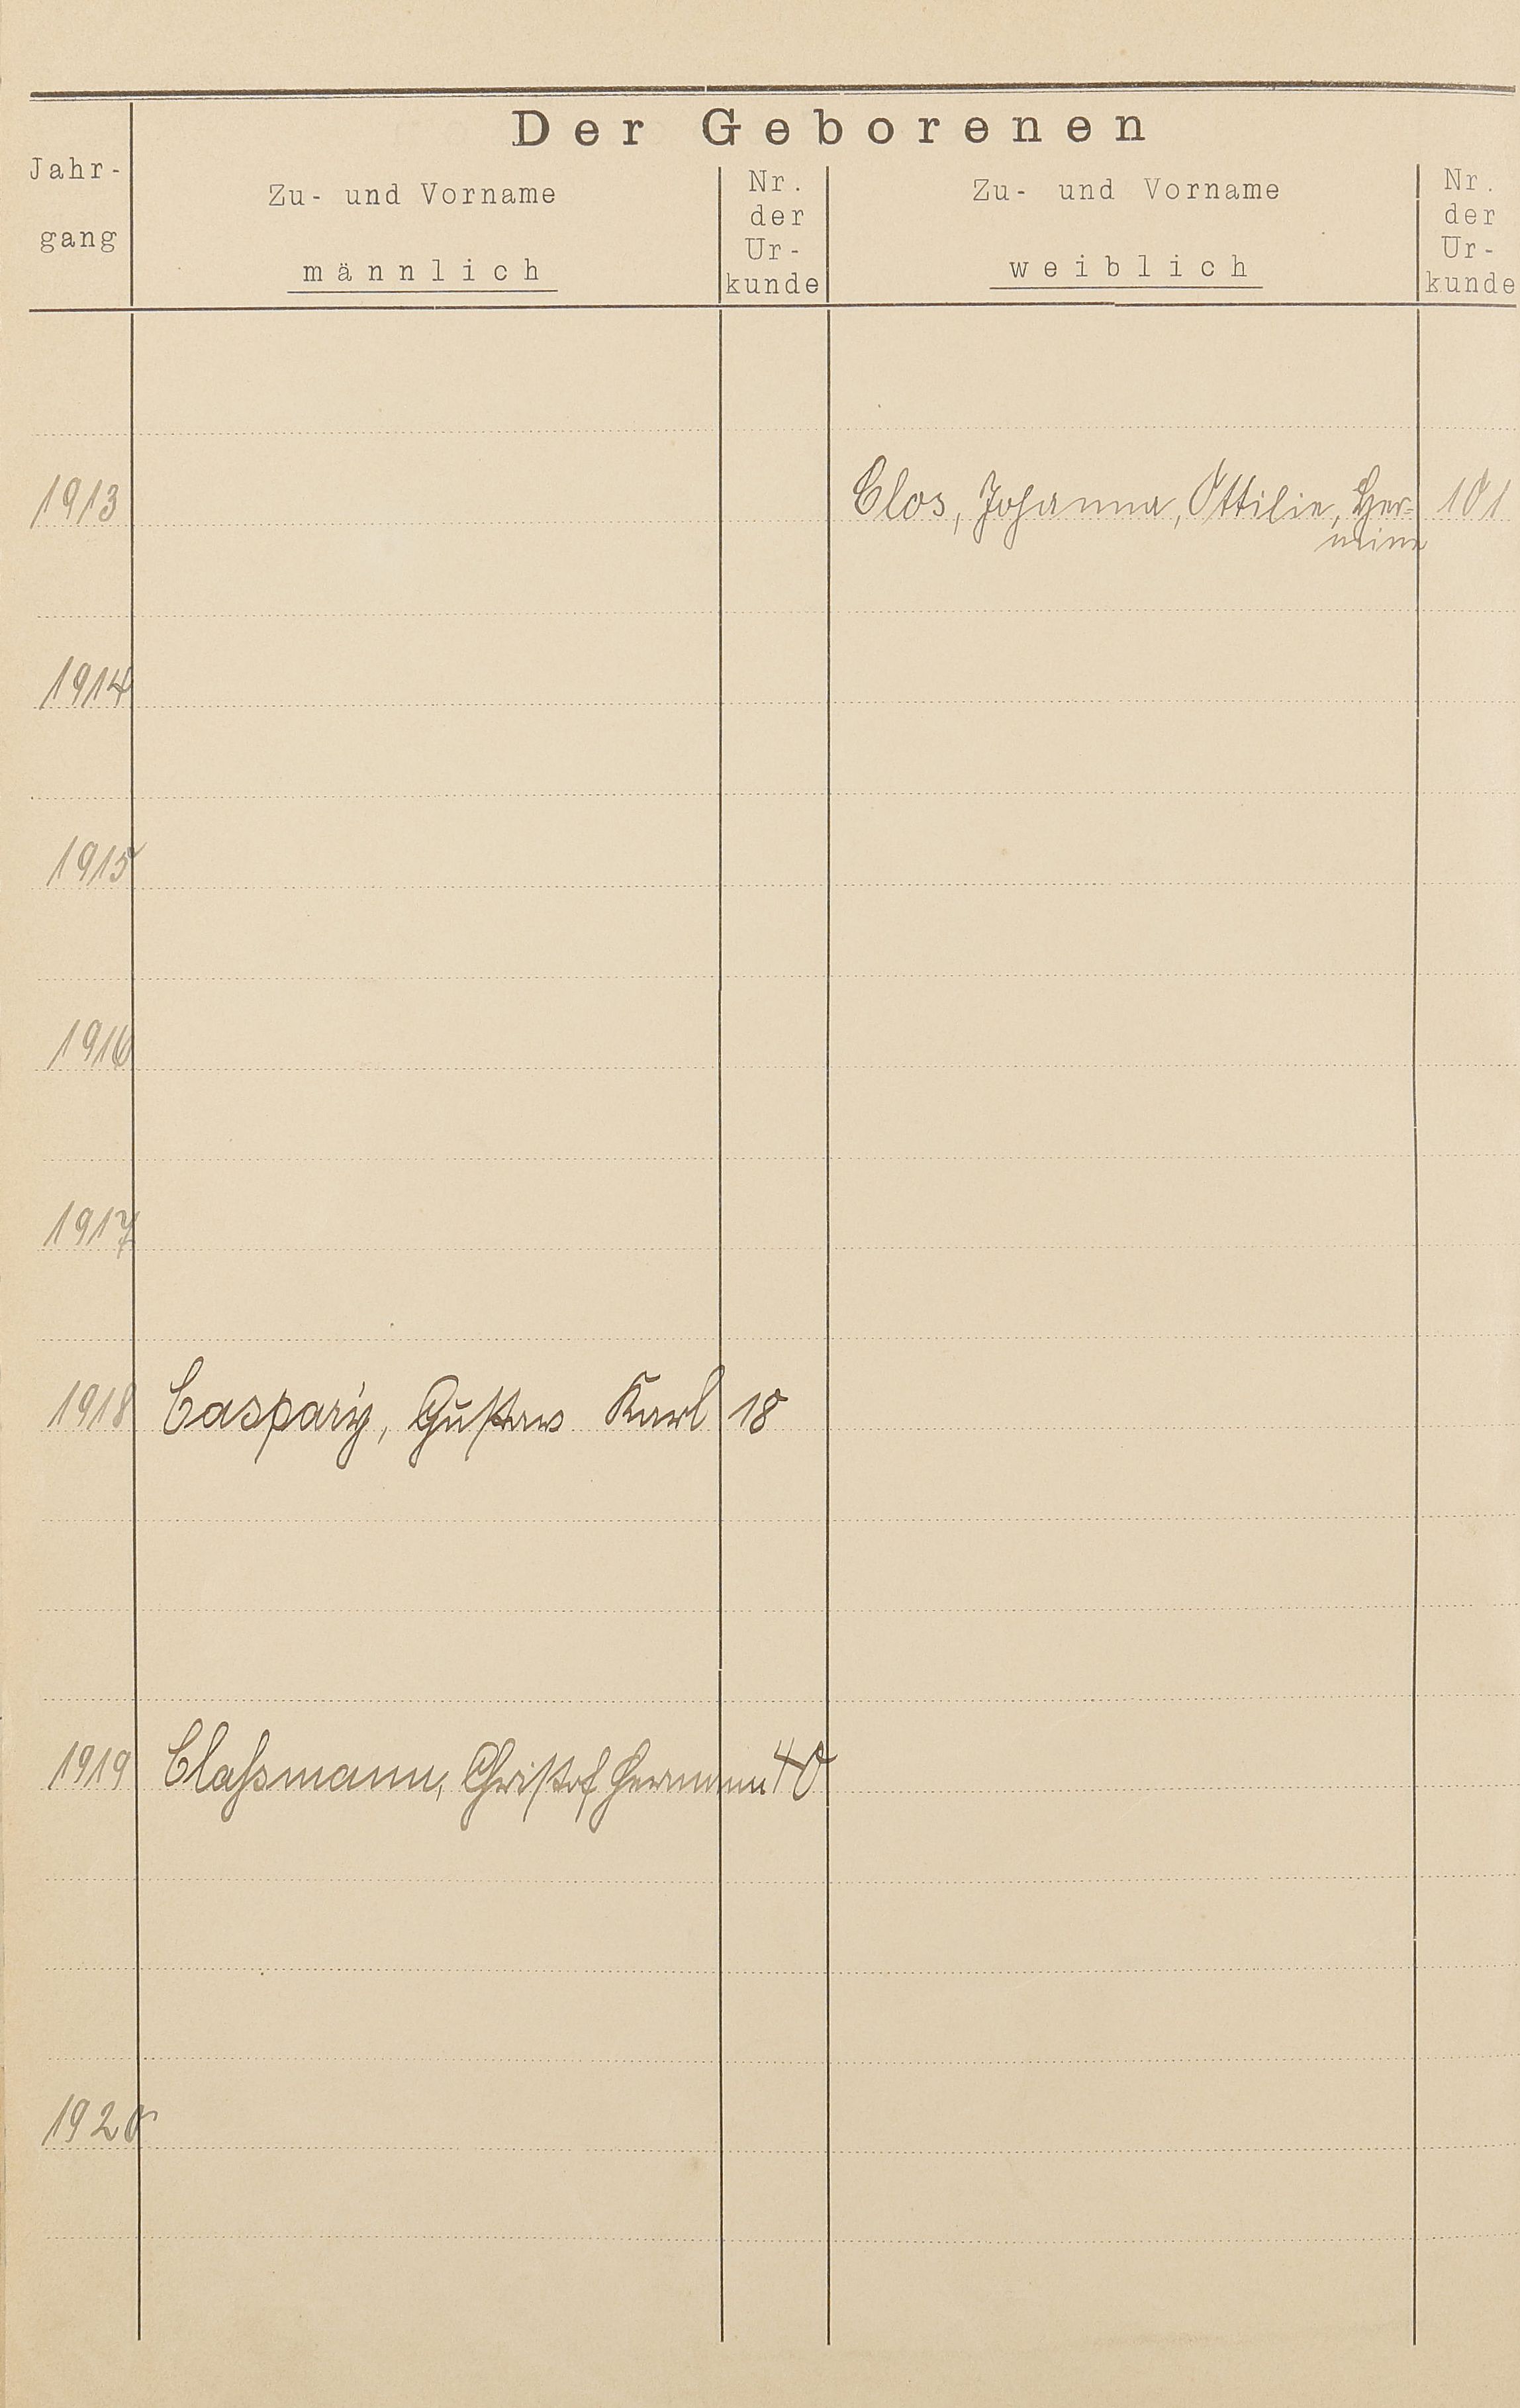 Der Geborenen
Jahr-
gang
Zu- und Vorname
männlich
Nr.
der
Ur-
kunde
Zu- und Vorname
weiblich
Nr.
der
Ur-
kunde
1913 Clos, Johanna, Ottilie, Her= 101
mine
1914
1915
1916
1917
1918 Caspary, Gustav Karl 18
1919 Claßmann, Christof Hermann 40
1920